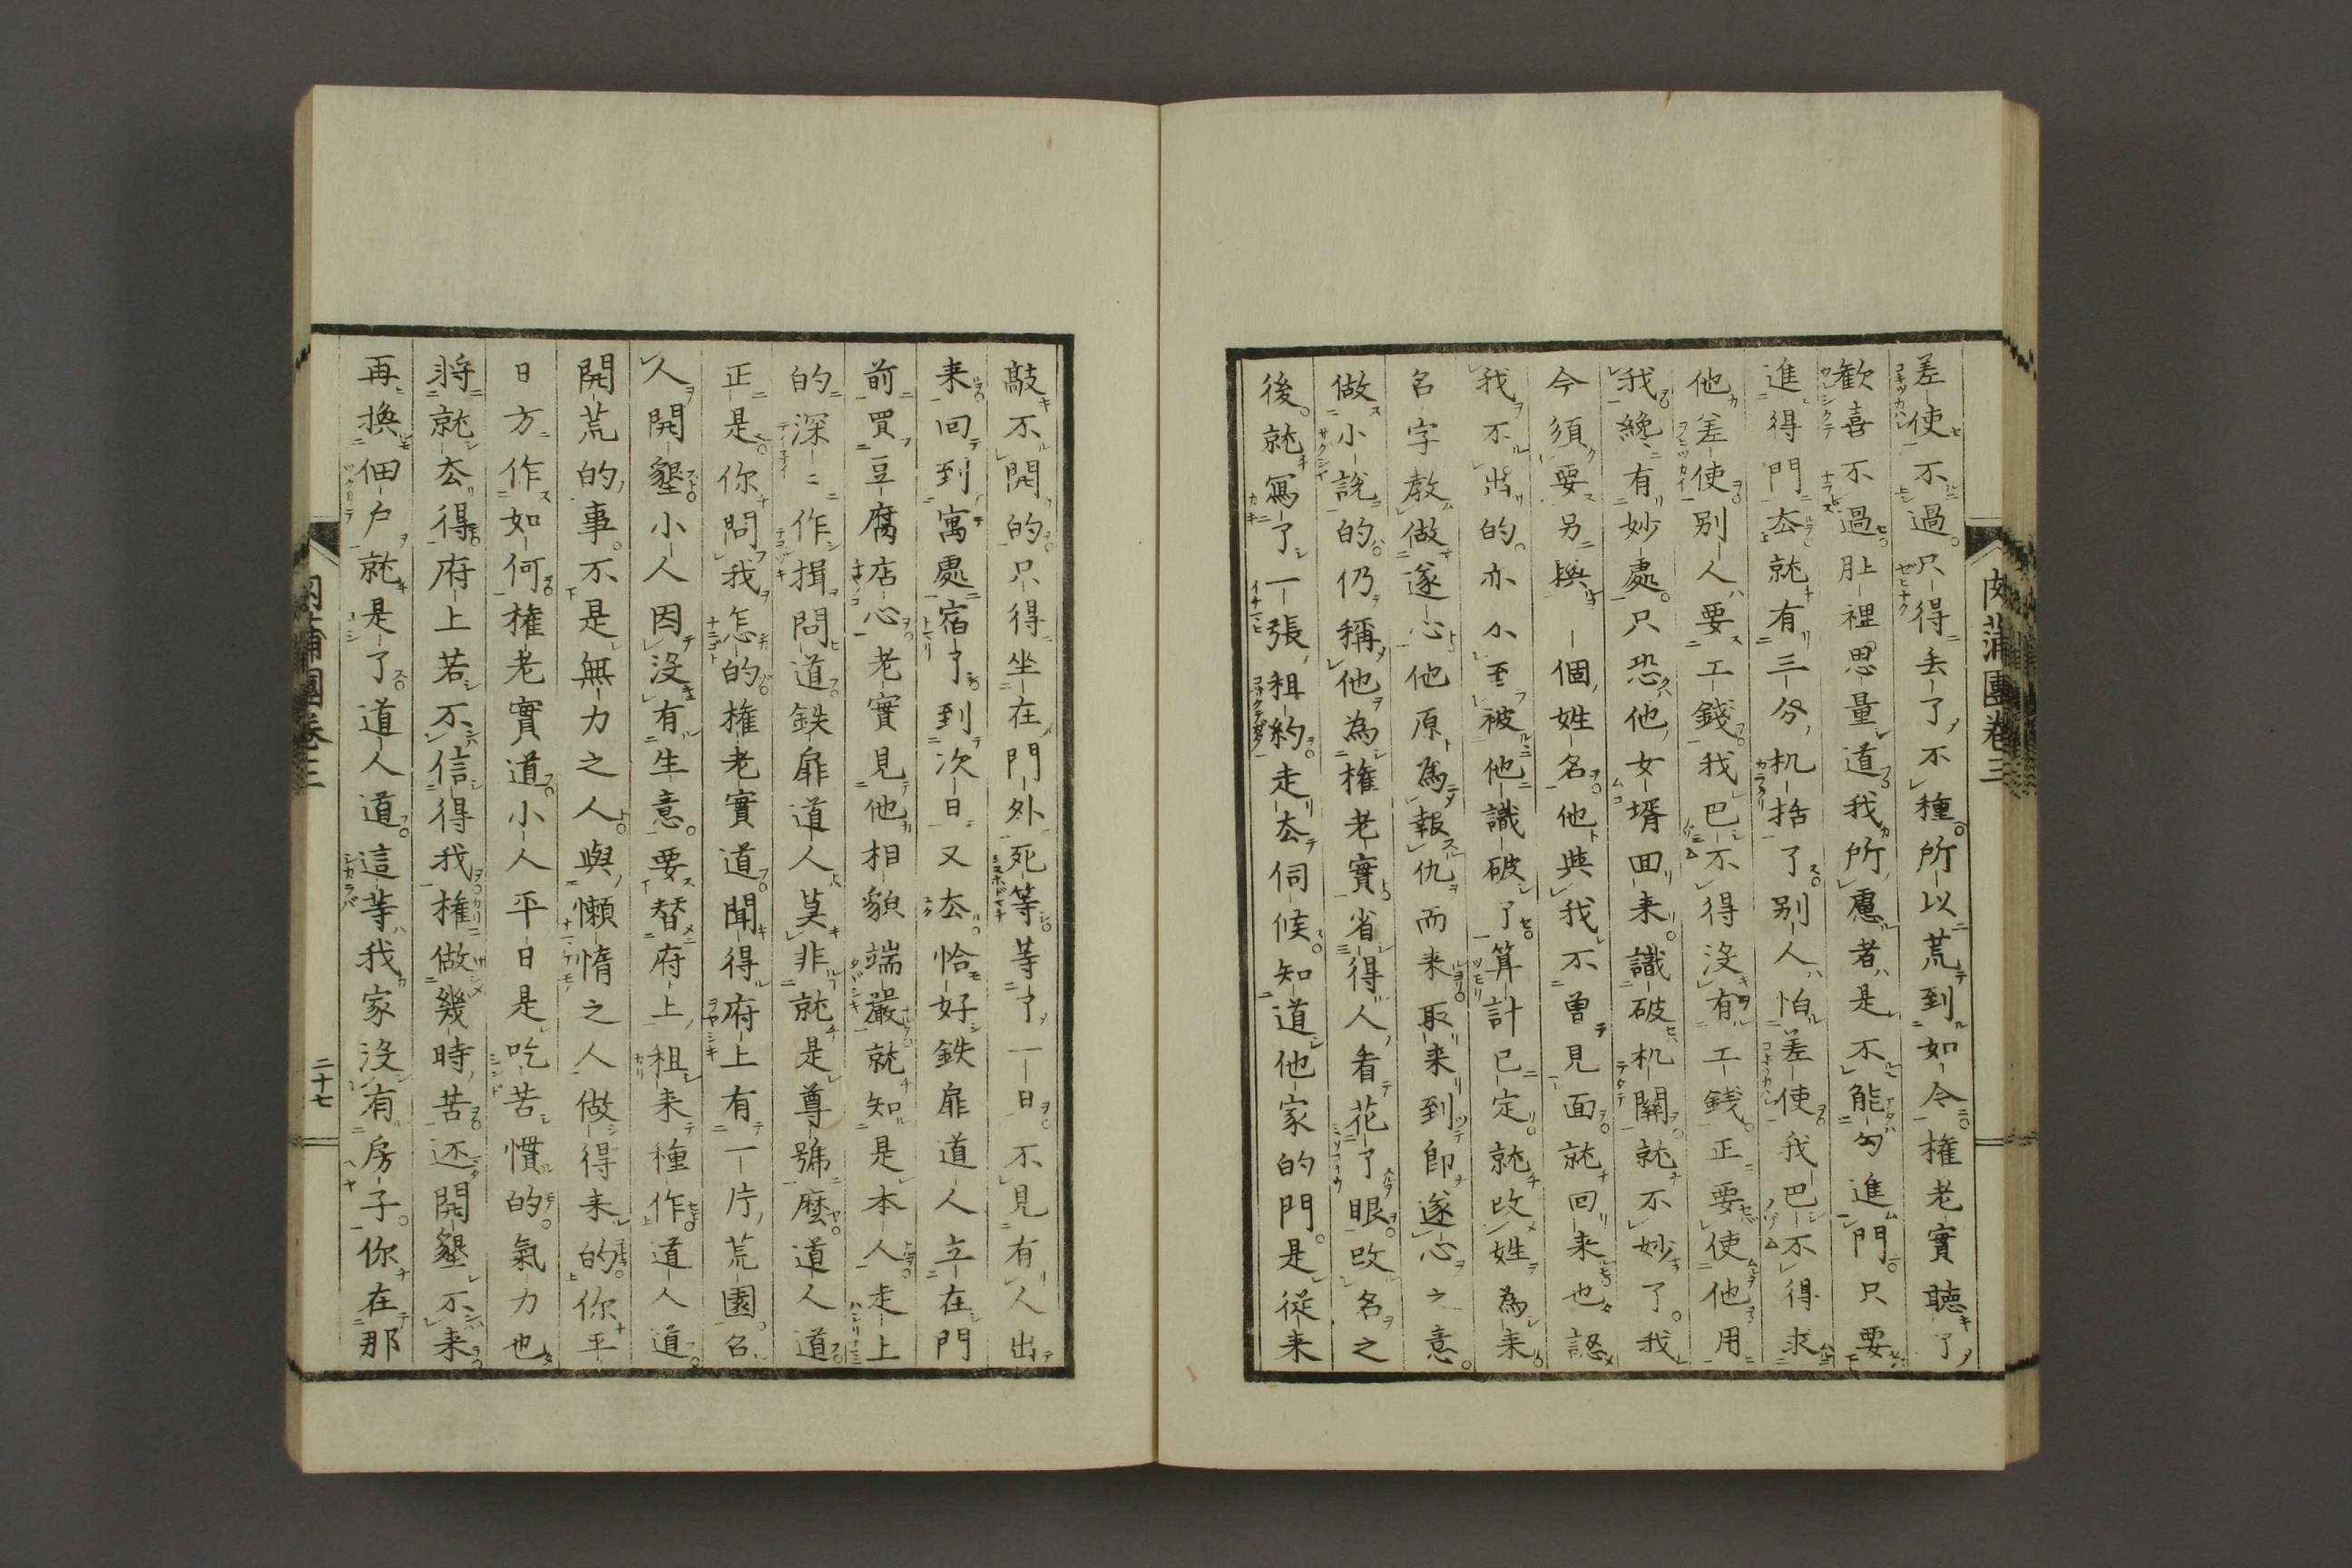 肉蒲團卷三
差使不過只得丢了不種所以荒到如今権老實聽了
歓喜不過肚裡思量道我所慮者是不能勾進門只要
進得門去就有三分机括了别人怕差使我巴不得求
他差使别人要工錢我巴不得没有工銭正要使他用
我纔有妙處只恐他女壻回来識破机關就不妙了我
今須要另換一個姓名他與我不曽見面就回来也認
我不出的亦不至被他識破了算計已定就改姓為来
名字教做遂心他原為報仇而来取来到即遂心之意
做小說的仍稱他為権老實省得人看花了眼改名之
後就寫了一張租約走去伺候知道他家的門是從来
敲不開的只得坐在門外死等等了一日不見有人出
来回到寓處宿了到次日又去恰好鉄扉道人立在門
前買豆腐店心老實見他相貌端嚴就知是本人走上
的深二作揖問道鉄扉道人莫非就是尊號麽道人道
正是你問我怎的権老實道聞得府上有一片荒園召
人開墾小人因没有生意要替府上租来種作道人道
開荒的事不是無力之人與懶惰之人做得来的你平
日方作如何権老實道小人平日是吃苦慣的氣力也
将就去得府上若不信得我権做幾時苦还開墾不来
再換佃户就是了道人道這等我家没有房子你在那
肉蒲團卷三
二十七